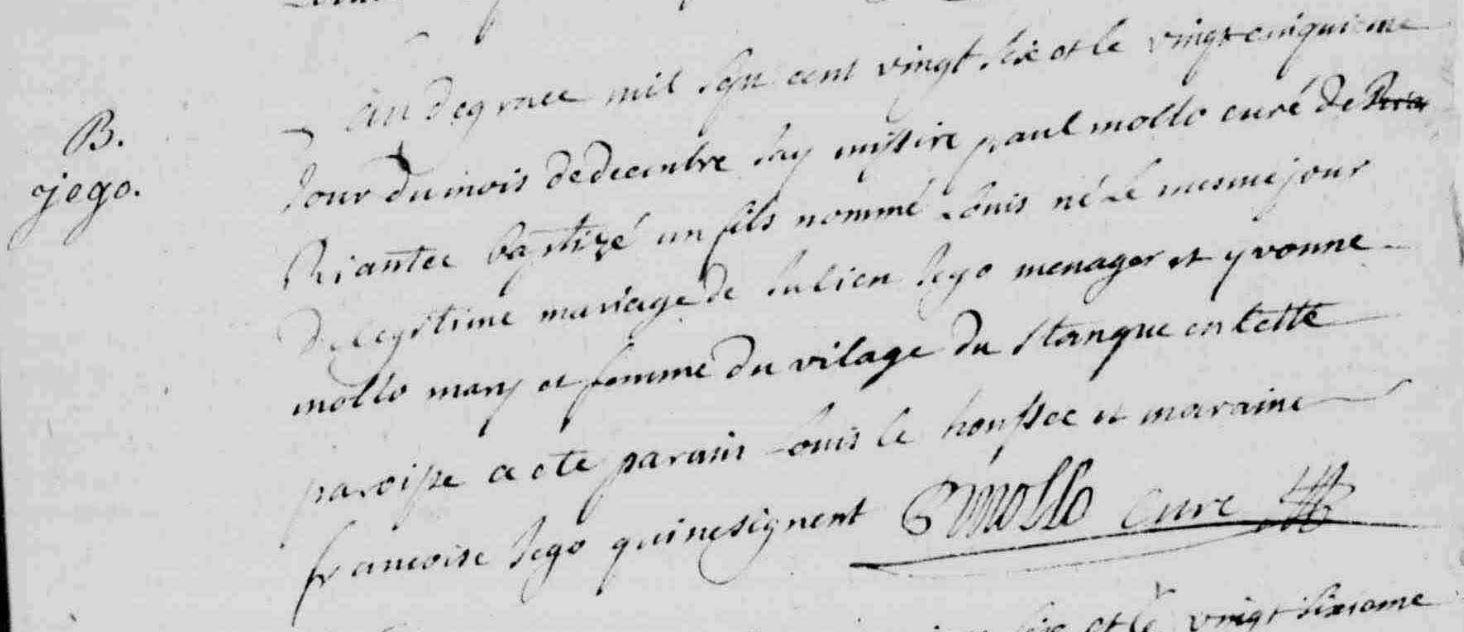 B.
jego.
Lan de grace mil sept cent vingt six et le vingt cinquieme
Jour du mois de decembre Je missire paul mollo curé de
Riantec baptizé un fils nommé Louis né le mesme jour
De legitime mariage de Julien Jego menager et yvonne
mollo mary et femme du vilage du Stanque en cette
paroisse a ete parain Louis le houssec et maraine
francoise Jego qui ne signent P mollo curé
six et le vingt sixieme